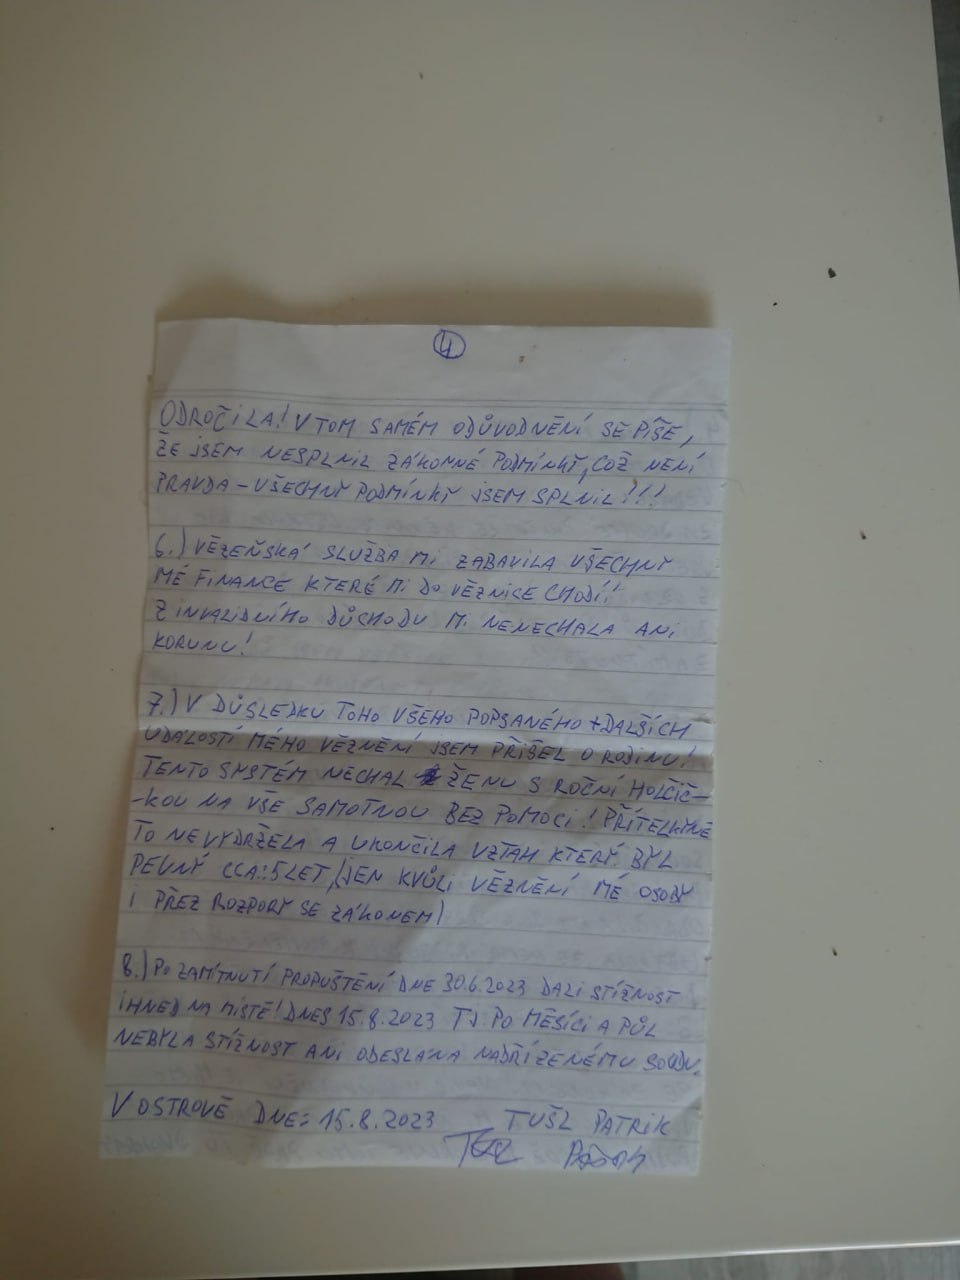 4
ODROČILA! V TOM SAMÉM ODŮVODNĚNÍ SE PÍŠE,
ŽE JSEM NESPLNIL ZÁKONNÉ PODMÍNKY, COŽ NENÍ
PRAVDA - VŠECHNY PODMÍNKY JSEM SPLNIL!!!
6.) VĚZEŇSKÁ SLUŽBA MI ZABAVILA VŠECHNY
MÉ FINANCE KTERÉ MI DO VĚZNICE CHODÍ!
Z INVALIDNÍHO DŮCHODU MI NENECHALA ANI
KORUNU!
7.) V DŮSLEDKU TOHO VŠEHO POPSANÉHO + DALŠÍCH
UDÁLOSTÍ MÉHO VĚZNĚNÍ JSEM PŘIŠEL O RODINU!
TENTO SYSTÉM NECHAL ŽENU S ROČNÍ HOLČIČ-
-KOU NA VŠE SAMOTNOU BEZ POMOCI! PŘÍTELKYNĚ
TO NEVYDRŽELA A UKONČILA VZTAH KTERÝ BYL
PEVNÝ CCA: 5 LET, (JEN KVŮLI VĚZNĚNÍ MÉ OSOBY
I PŘEZ ROZPORY SE ZÁKONEM)
8.) PO ZAMÍTNUTÍ PROPUŠTĚNÍ DNE 30.6.2023 DALI STÍŽNOST
IHNED NA MÍSTĚ! DNES 15.8.2023 TJ PO MĚSÍCI A PŮL
NEBYLA STÍŽNOST ANI ODESLÁNA NADŘÍZENÉMU SOUDU.
V OSTROVĚ DNE: 15.8.2023 TUŠL PATRIK